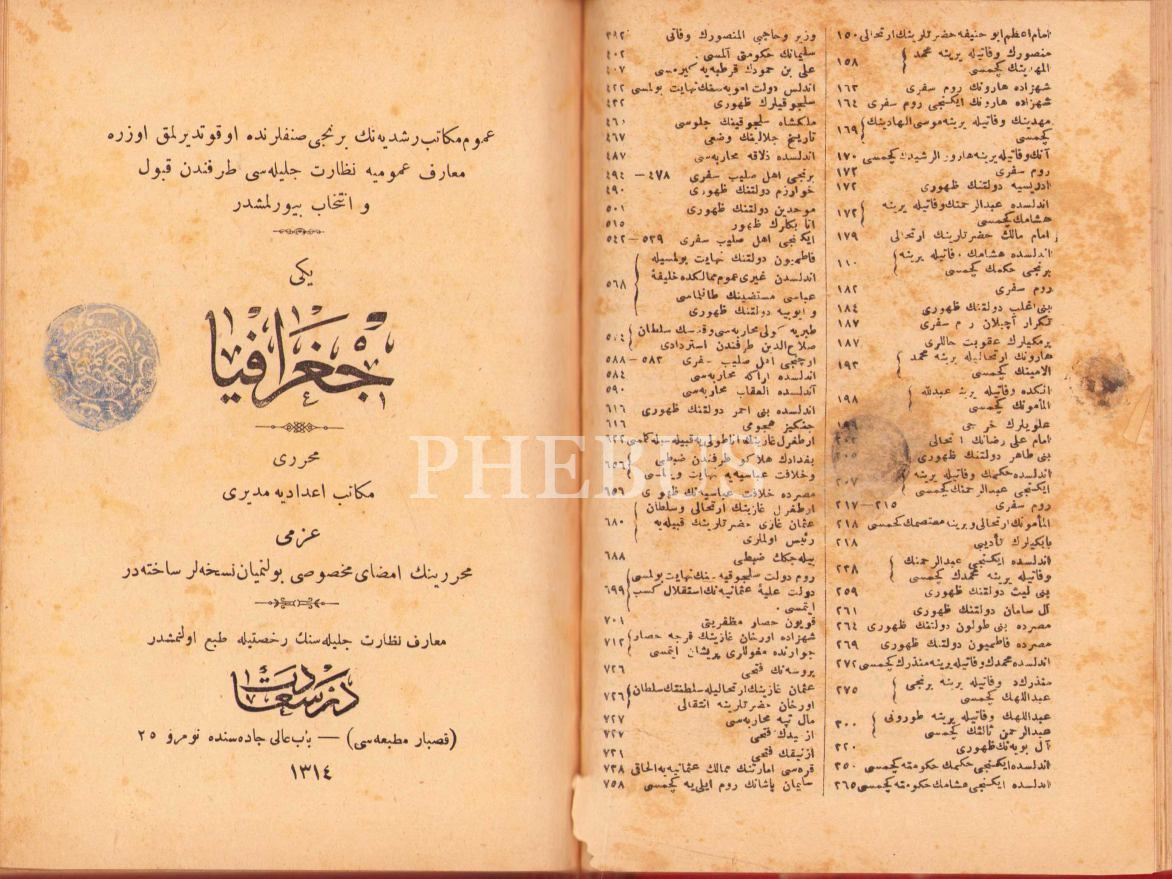 عموم مكاتب رشديه‌نك برنجی صنفلرنده اوقوتديرلمق اوزره
معارف عموميه نظارت جليله‌سی طرفندن قبول
و انتخاب بيورلمشدر
يكی
جغرافيا
محرری
مكاتب اعداديه مديری
عزمی
محررينك امضای مخصوصی بولنميان نسخه‌لر ساخته‌در
معارف نظارت جليله‌سنك رخصتيله طبع اولنمشدر
درسعادت
(قصبار مطبعه‌سی) — باب عالی جاده‌سنده نومرو ٢٥
١٣١٤
PHEBUS
امام اعظم ابو حنيفه حضرتلرينك ارتحالی ١٥٠
منصورك وفاتيله يرينه محمد
المهدينك كچمسی ١٥٨
شهزاده هارونك روم سفری ١٦٣
شهزاده هارونك ايكنجی روم سفری ١٦٤
مهدينك وفاتيله يرينه موسی الهادينك
كچمسی ١٦٩
آنك وفاتيله يرينه هارون الرشيدك كچمسی ١٧٠
روم سفری ١٧٢
ادريسيه دولتنك ظهوری ١٧٢
اندلسده عبدالرحمنك وفاتيله يرينه
هشامك كچمسی ١٧٢
امام مالك حضرتلرينك ارتحالی ١٧٩
اندلسده هشامك وفاتيله يرينه
برنجی حكمك كچمسی ١١٠
روم سفری ١٨٢
بنی اغلب دولتنك ظهوری ١٨٤
تكرار آچيلان روم سفری ١٨٧
برمكيلرك عقوبت حاللری ١٨٧
هارونك ارتحاليله يرينه محمد
الامينك كچمسی ١٩٣
يرينه عبدالله
المأمونك كچمسی ١٩٨
علويلرك خروجی ١٩٩
امام علی رضانك ارتحالی
بنی طاهر دولتنك ظهوری
اندلسده حكمك وفاتيله يرينه
ايكنجی عبدالرحمنك كچمسی
روم سفری ٢١٥—٢١٧
المأمونك ارتحالی و يرينه معتصمك كچمسی ٢١٨
بابكيلرك تأديبی ٢١٨
اندلسده ايكنجی عبدالرحمنك
وفاتيله يرينه محمدك كچمسی ٢٣٨
بنی ليث دولتنك ظهوری ٢٥٩
آل سامان دولتنك ظهوری ٢٦١
مصرده بنی طولون دولتنك ظهوری ٢٦٤
مصرده فاطميون دولتنك ظهوری ٢٦٩
اندلسده محمدك وفاتيله يرينه منذرك كچمسی ٢٧٢
منذرك وفاتيله يرينه برنجی
عبداللهك كچمسی ٢٧٥
عبداللهك وفاتيله يرينه طورونی
عبدالرحمن ثالثك كچمسی ٣٠٠
آل بويه‌نك ظهوری ٣٢٠
اندلسده ايكنجی حكمك حكومته كچمسی ٣٥٠
اندلسده ايكنجی هشامك حكومته كچمسی ٣٦٥
وزير و حاجبی المنصورك وفاتی ٣٩٢
سليمانك حكومتی آلمسی ٤٠٢
علی بن حمودك قرطبه‌يه كيرمسی ٤٠٧
اندلس دولت امويه‌سنك نهايت بولمسی ٤٢٢
سلجوقيلرك ظهوری ٤٣٢
ملكشاه سلجوقينك جلوسی ٤٦٠
تاريخ جلالينك وضعی ٤٦٧
اندلسده ذلاقه محاربه‌سی ٤٨٧
برنجی اهل صليب سفری ٤٧٨—٤٩٤
خوارزم دولتنك ظهوری ٤٩٠
موحدين دولتنك ظهوری ٥٠١
اتابكلرك ظهور ٥١٥
ايكنجی اهل صليب سفری ٥٣٩—٥٤٢
فاطميون دولتنك نهايت بولمسيله
اندلسدن غيری عموم ممالكده خليفهٔ
عباسی مستضينك طانلمسی
و ايوبيه دولتنك ظهوری ٥٦٨
طبريه كولی محاربه‌سی و قدسك سلطان
صلاح‌الدين طرفندن استردادی
اوچنجی اهل صليب سفری ٥٨٣—٥٨٨
اندلسده اراكه محاربه‌سی ٥٨٤
اندلسده العقاب محاربه‌سی ٥٩٠
اندلسده بنی احمر دولتنك ظهوری ٦١٦
جنكيز هجومی ٦١٦
ارطغرل غازينك اناطولی‌يه قبيله‌سيله كلمسی ٦٢٢
بغدادك هلاكو طرفندن ضبطی
و خلافت عباسيه‌يه نهايت ويرلمسی ٦٥٦
مصرده خلافت عباسيه‌نك ظهوری ٦٥٦
ارطغرل غازينك ارتحالی و سلطان
عثمان غازی حضرتلرينك قبيله‌يه
رئيس اولماری ٦٨٠
بيله‌جكك ضبطی ٦٨٨
روم دولت سلجوقيه‌سنك نهايت بولمسی
دولت عليهٔ عثمانيه‌نك استقلال كسب
ايتمسی ٦٩٩
قويون حصار مظفريتی ٧٠١
شهزاده اورخان غازينك قرجه حصار
جوارنده مغوللری پريشان ايتمسی ٧١٢
بروسه‌نك فتحی ٧٢٦
عثمان غازينك ارتحاليله سلطنتك سلطان
اورخان حضرتلرينه انتقالی ٧٢٦
مال تپه محاربه‌سی ٧٢٧
ازميدك فتحی ٧٢٧
ازنيقك فتحی ٧٣١
قره‌سی امارتنك ممالك عثمانيه‌يه الحاقی ٧٣٨
سليمان پاشانك روم ايلی‌يه كچمسی ٧٥٨